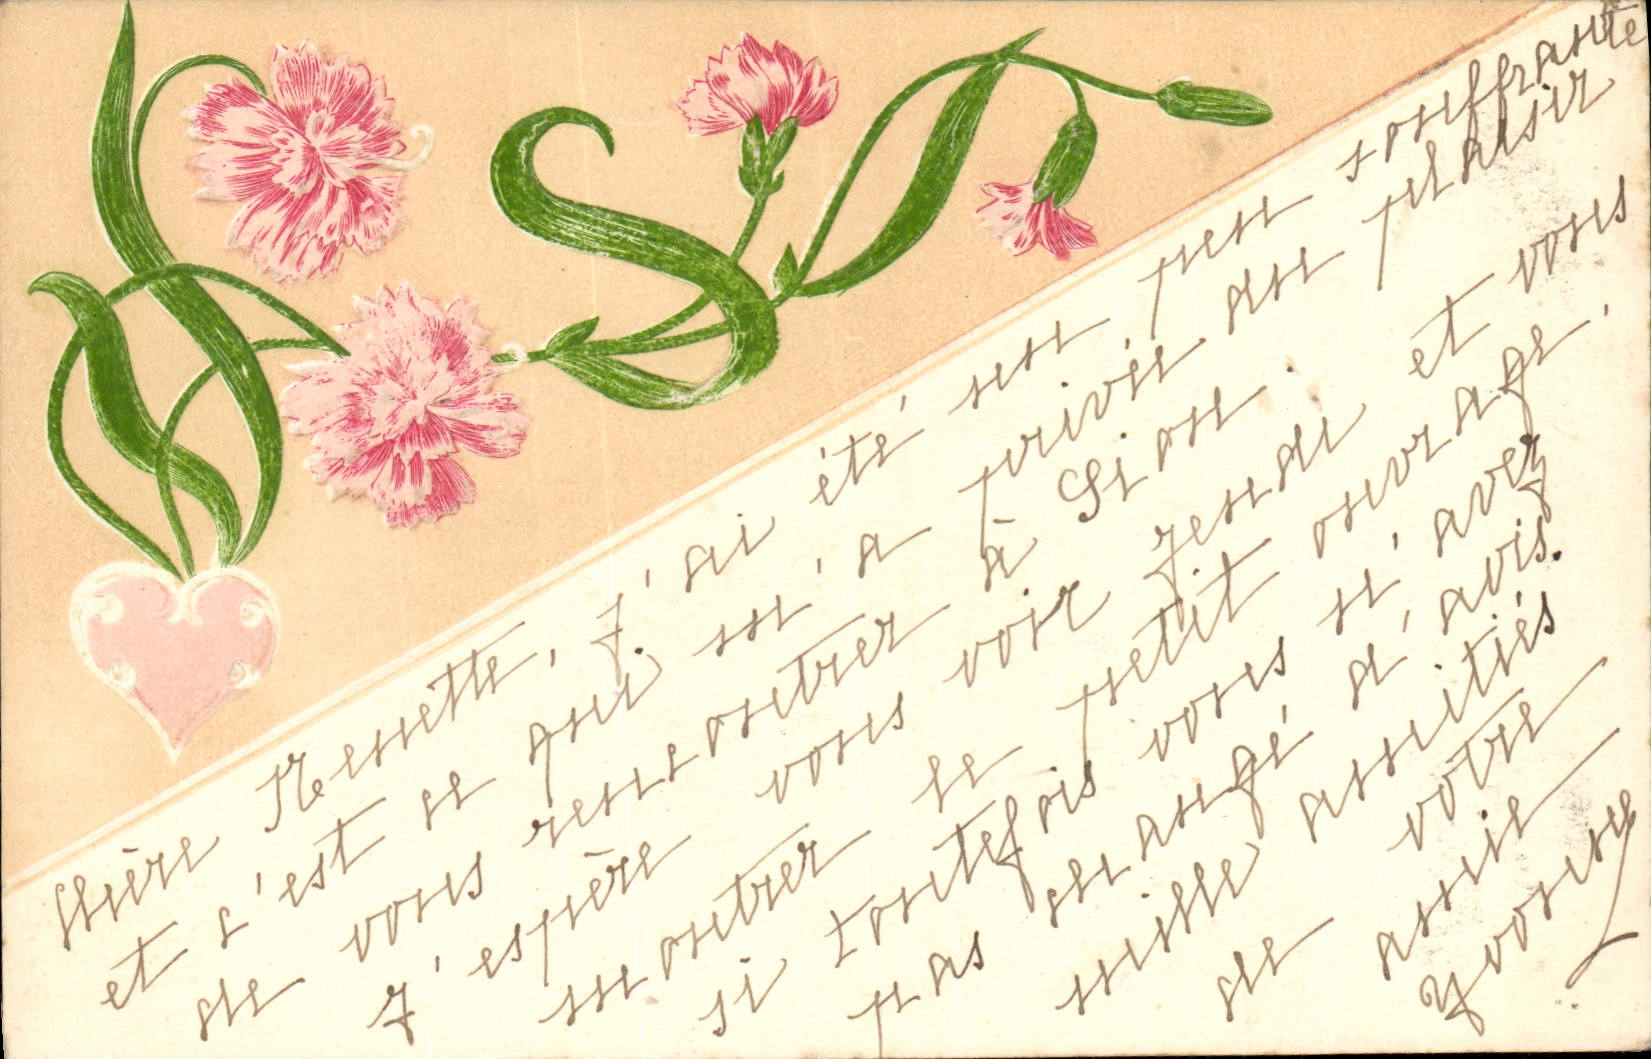 Chère Nenette, j'ai été un peu souffrante
et c'est ce qui m'a privée du plaisir
de vous rencontrer à Sion.
J'espère vous voir jeudi et vous
montrer le petit ouvrage,
si toutefois vous n'avez
pas changé d'avis.
mille amitiés
de votre
amie